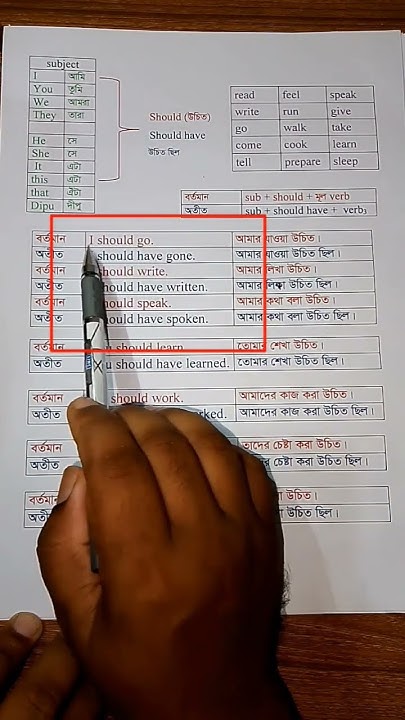 subject
I আমি
You তুমি
We আমরা
They তারা
He সে
She সে
It এটা
this এটা
that ঐটা
Dipu দীপু
Should (উচিত)
Should have
উচিত ছিল
read feel speak
write run give
go walk take
come cook learn
tell prepare sleep
বর্তমান sub + should + মূল verb
অতীত sub + should have + verb₃
বর্তমান I should go. আমার যাওয়া উচিত।
অতীত should have gone. আমার যাওয়া উচিত ছিল।
বর্তমান should write. আমার লিখা উচিত।
অতীত should have written. আমার লিখা উচিত ছিল।
বর্তমান should speak. আমার কথা বলা উচিত।
অতীত should have spoken. আমার কথা বলা উচিত ছিল।
বর্তমান should learn. তোমার শেখা উচিত।
অতীত should have learned. তোমার শেখা উচিত ছিল।
বর্তমান should work. আমাদের কাজ করা উচিত।
অতীত আমাদের কাজ করা উচিত ছিল।
বর্তমান তাদের চেষ্টা করা উচিত।
অতীত চেষ্টা করা উচিত ছিল।
বর্তমান উচিত।
অতীত উচিত ছিল।